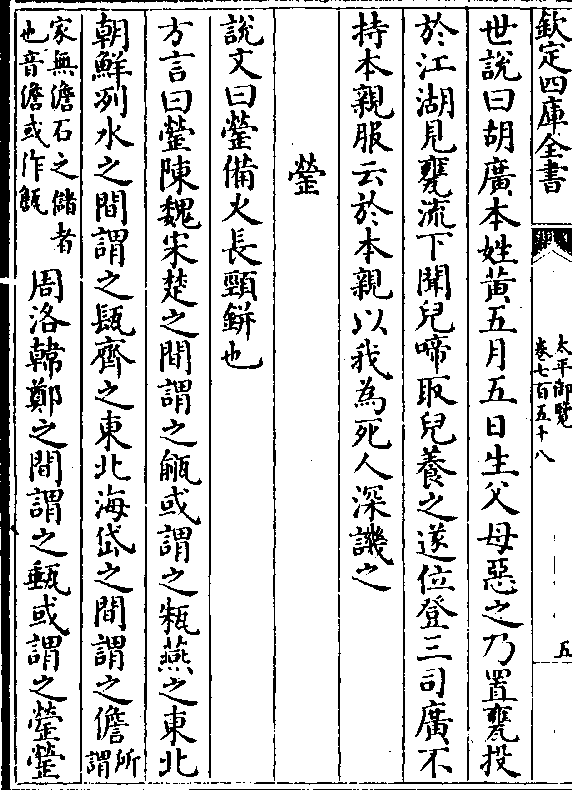 欽定四庫全書
太平御覽
卷七百五十八
五
世說曰胡廣本姓黃五月五日生父母惡之乃置甕投
於江湖見甕流下聞兒啼取兒養之遂位登三司廣不
持本親服云於本親以我為死人深譏之
罃
說文曰罃備火長頸缾也
方言曰罃陳魏宋楚之間謂之㼶或謂之燕之東北
朝鮮洌水之間謂之瓺齊之東北海岱之間謂之儋所謂
家無儋石之儲者也音儋或作甔周洛韓鄭之間謂之甀或謂之罃罃